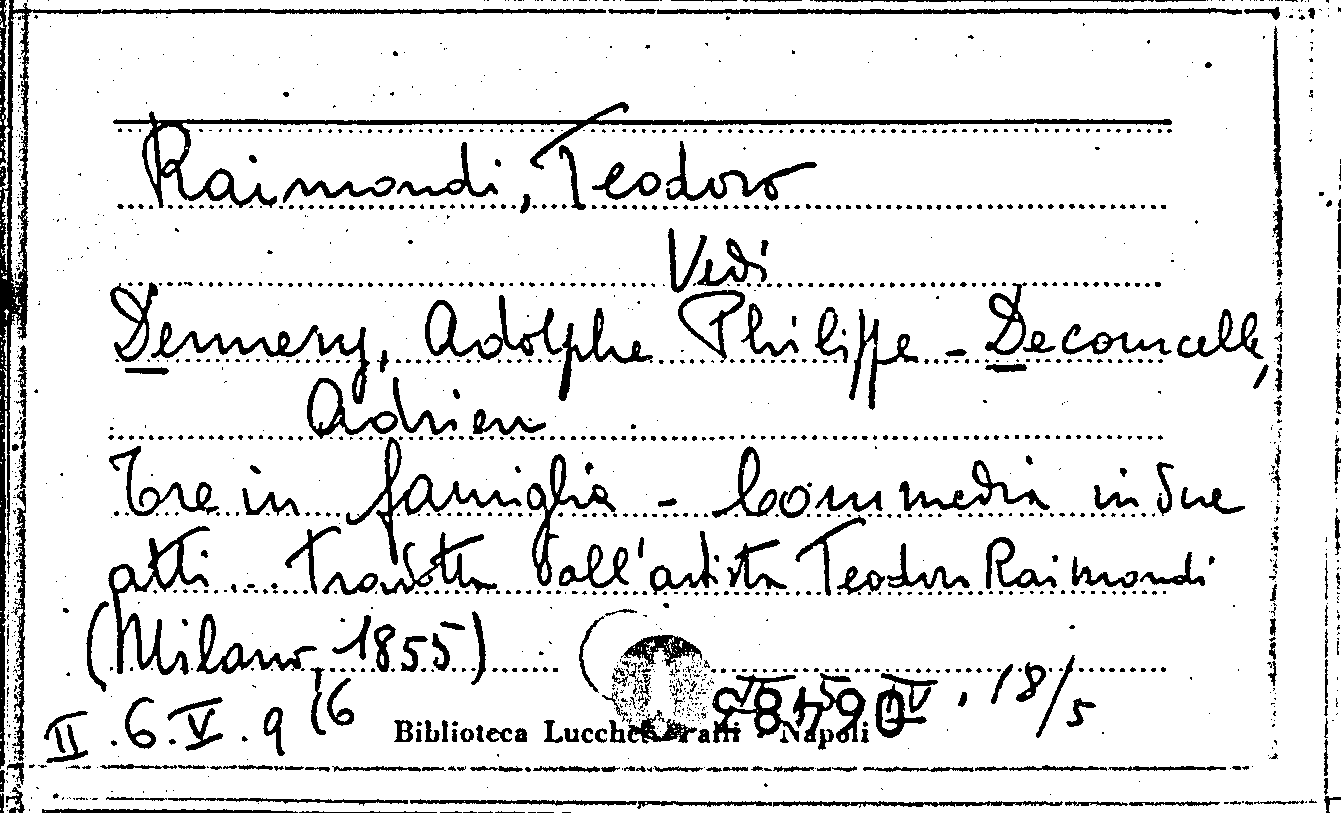 Raimondi, Teodoro
Vedi
Dennery, Adolphe Philippe - Decourcelle,
Adrien
Tre in famiglia - Commedia in due
atti... tradotta dall'artista Teodoro Raimondi
(Milano, 1855)
II.6.V.9 (6 Biblioteca Lucchesi Palli - Napoli , 18/5